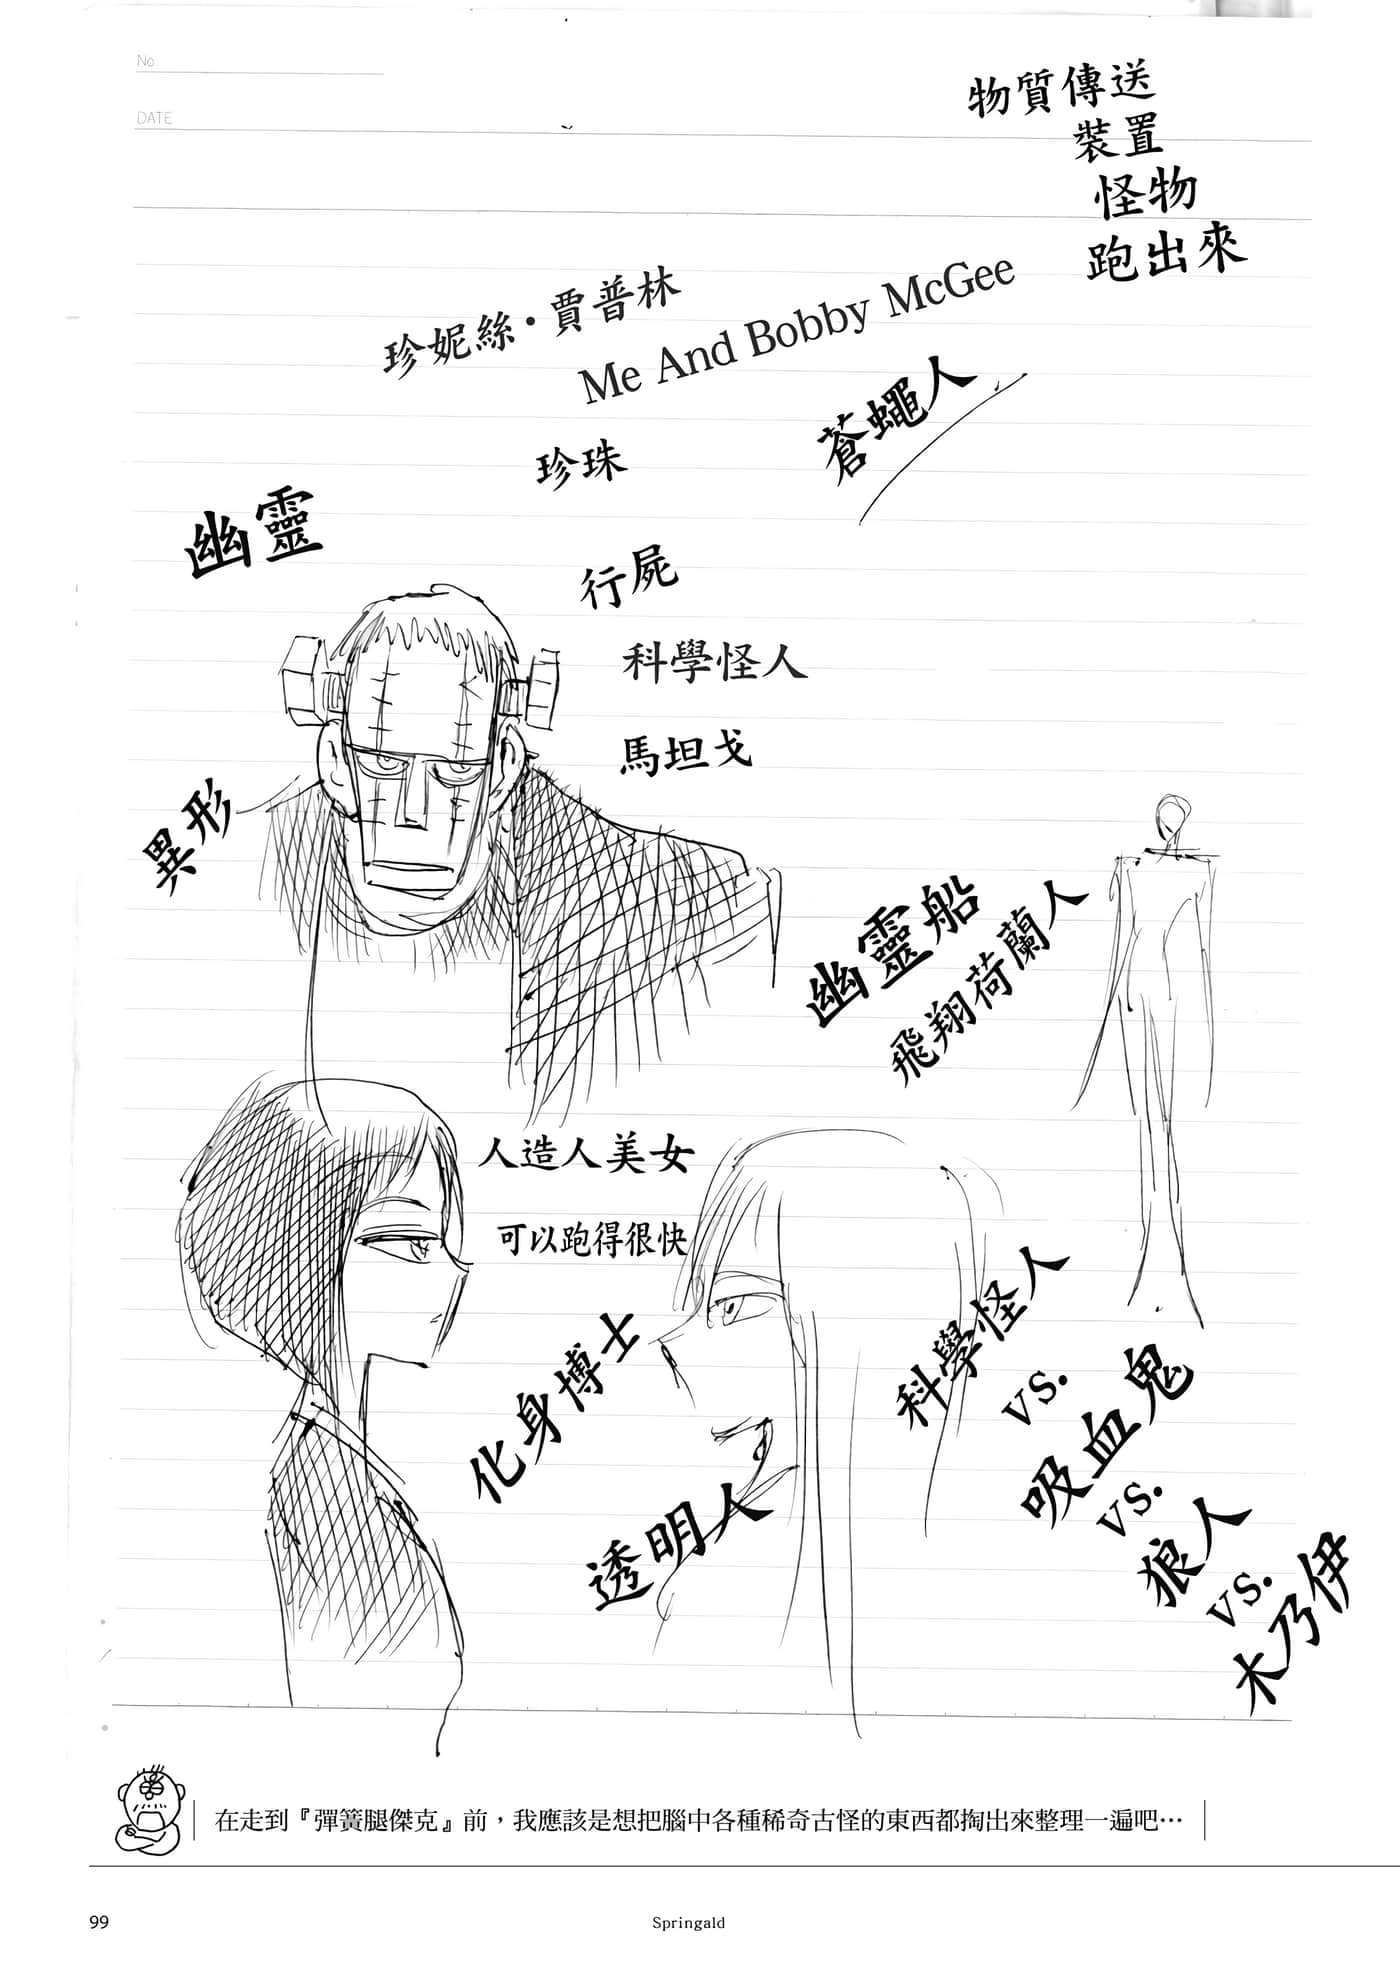 No
DATE
物質傳送
裝置
怪物
跑出來
珍妮絲·賈普林
Me And Bobby McGee
蒼蠅人
珍珠
幽靈
行屍
科學怪人
馬坦戈
異形
幽靈船
飛翔荷蘭人
人造人美女
可以跑得很快
化身博士
透明人
科學怪人
vs.
吸血鬼
vs.
狼人
vs.
木乃伊
在走到『彈簧腿傑克』前，我應該是想把腦中各種稀奇古怪的東西都掏出來整理一遍吧…
99
Springald